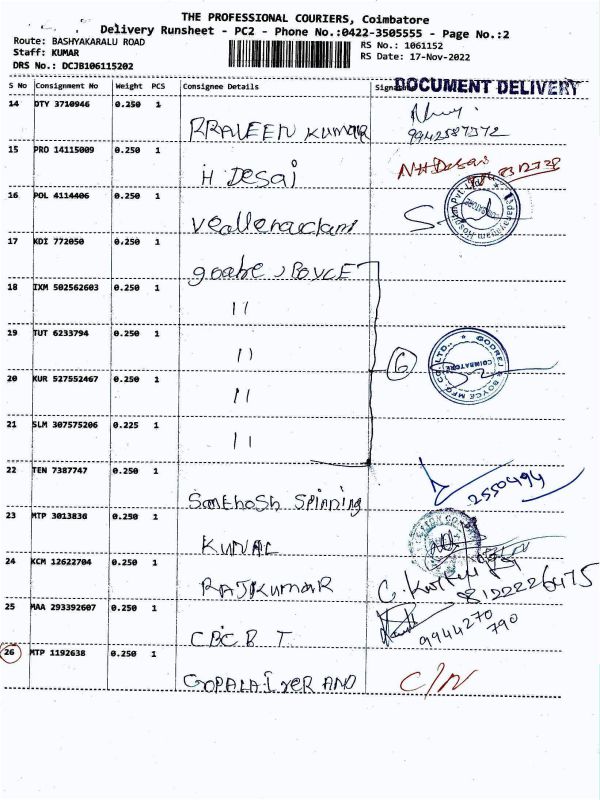 THE PROFESSIONAL COURIERS, Coimbatore
Delivery Runsheet - PC2 - Phone No.:0422-3505555 - Page No.:2
Route: BASHYAKARALU ROAD
Staff: KUMAR
DRS No.: DCJB106115202
RS No.: 1061152
RS Date: 17-Nov-2022
S No Consignment No Weight PCS Consignee Details
DOCUMENT DELIVERY
14 DTY 3710946 0.250 1
PRAVEEN KUMAR
9942587372
15 PRO 14115009 0.250 1
H Desai
NHDesai
16 POL 4114406 0.250 1
17 KDI 772050 0.250 1
18 IXM 502562603 0.250 1
11
19 TUT 6233794 0.250 1
11
GODREJ & BOYCE MFG. CO. LTD.,
COIMBATORE
6
20 KUR 527552467 0.250 1
11
21 SLM 307575206 0.225 1
11
22 TEN 7387747 0.250 1
Santhosh Spinning
2550494
23 MTP 3013836 0.250 1
KUNAL
24 KCM 12622704 0.250 1
RAJKUMAR
8122226475
25 MAA 293392607 0.250 1
9944270
790
26 MTP 1192638 0.250 1
GOPALAIYER AND
C/N